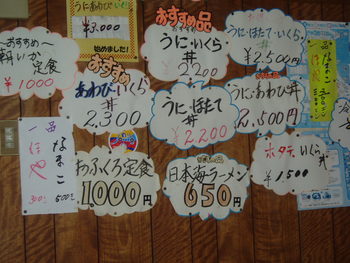 うにあわび丼
¥3,000
始めました!
おすすめ品
うに・いくら
丼
2,200
うに・ほたて・いくら
丼
¥2,500円
～おすすめ～
朝いか
定食
¥1000
おすすめ
あわび・いくら
丼
2,300
うに、ほたて
丼
¥2200
うに・あわび丼
2,500円
一品
なまこ
ほや
300円
500円
おふくろ定食
1000円
日本海ラーメン
650円
ホタテ、いくら
丼
¥1,500